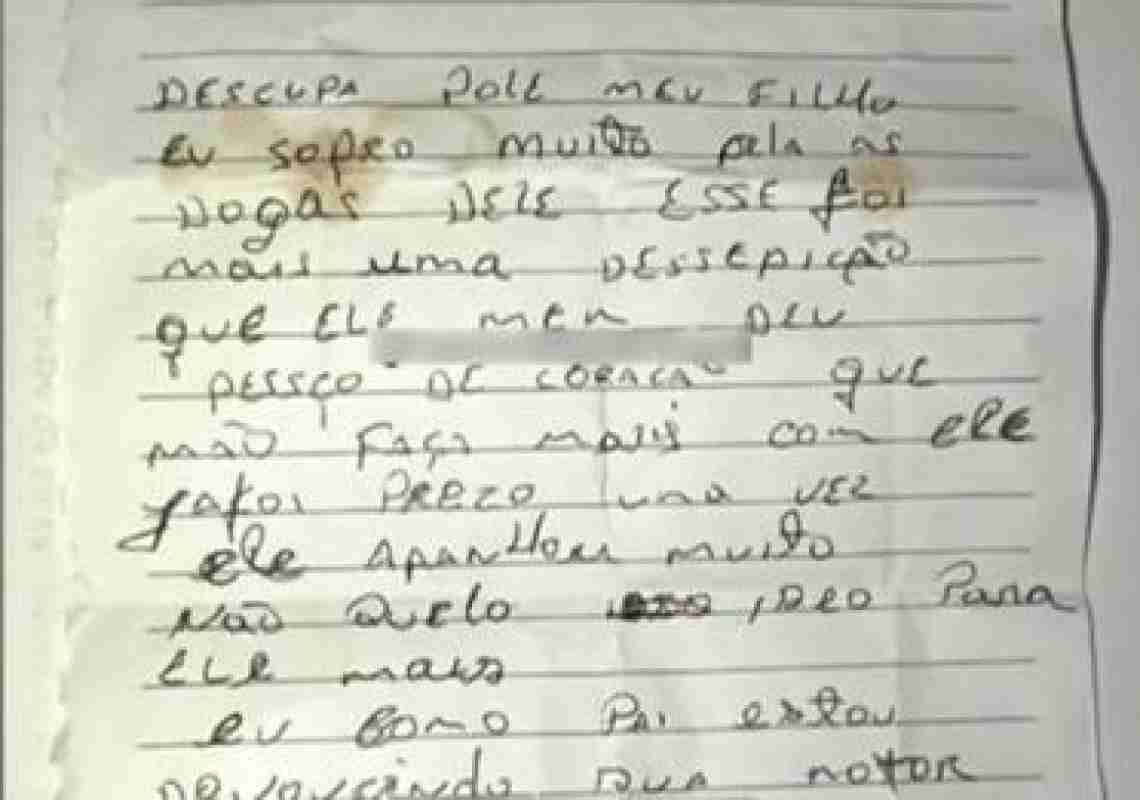 DESCUPA POLE MEU FILHO
EU SOFRO MUITO pela as
DOGAS DELE ESSE foi
mais uma DESSEPIÇÃO
que ELE MEM DEU
PESSÇO DE CORACAO que
NÃO FAÇA mais com ele
JAFOI PREZO uma VEZ
ele APANHOU muito
NÃO QUELO ,DEO PARA
ELE mais
EU COMO PAI estou
DEVOUVENDO SUA MOTOR